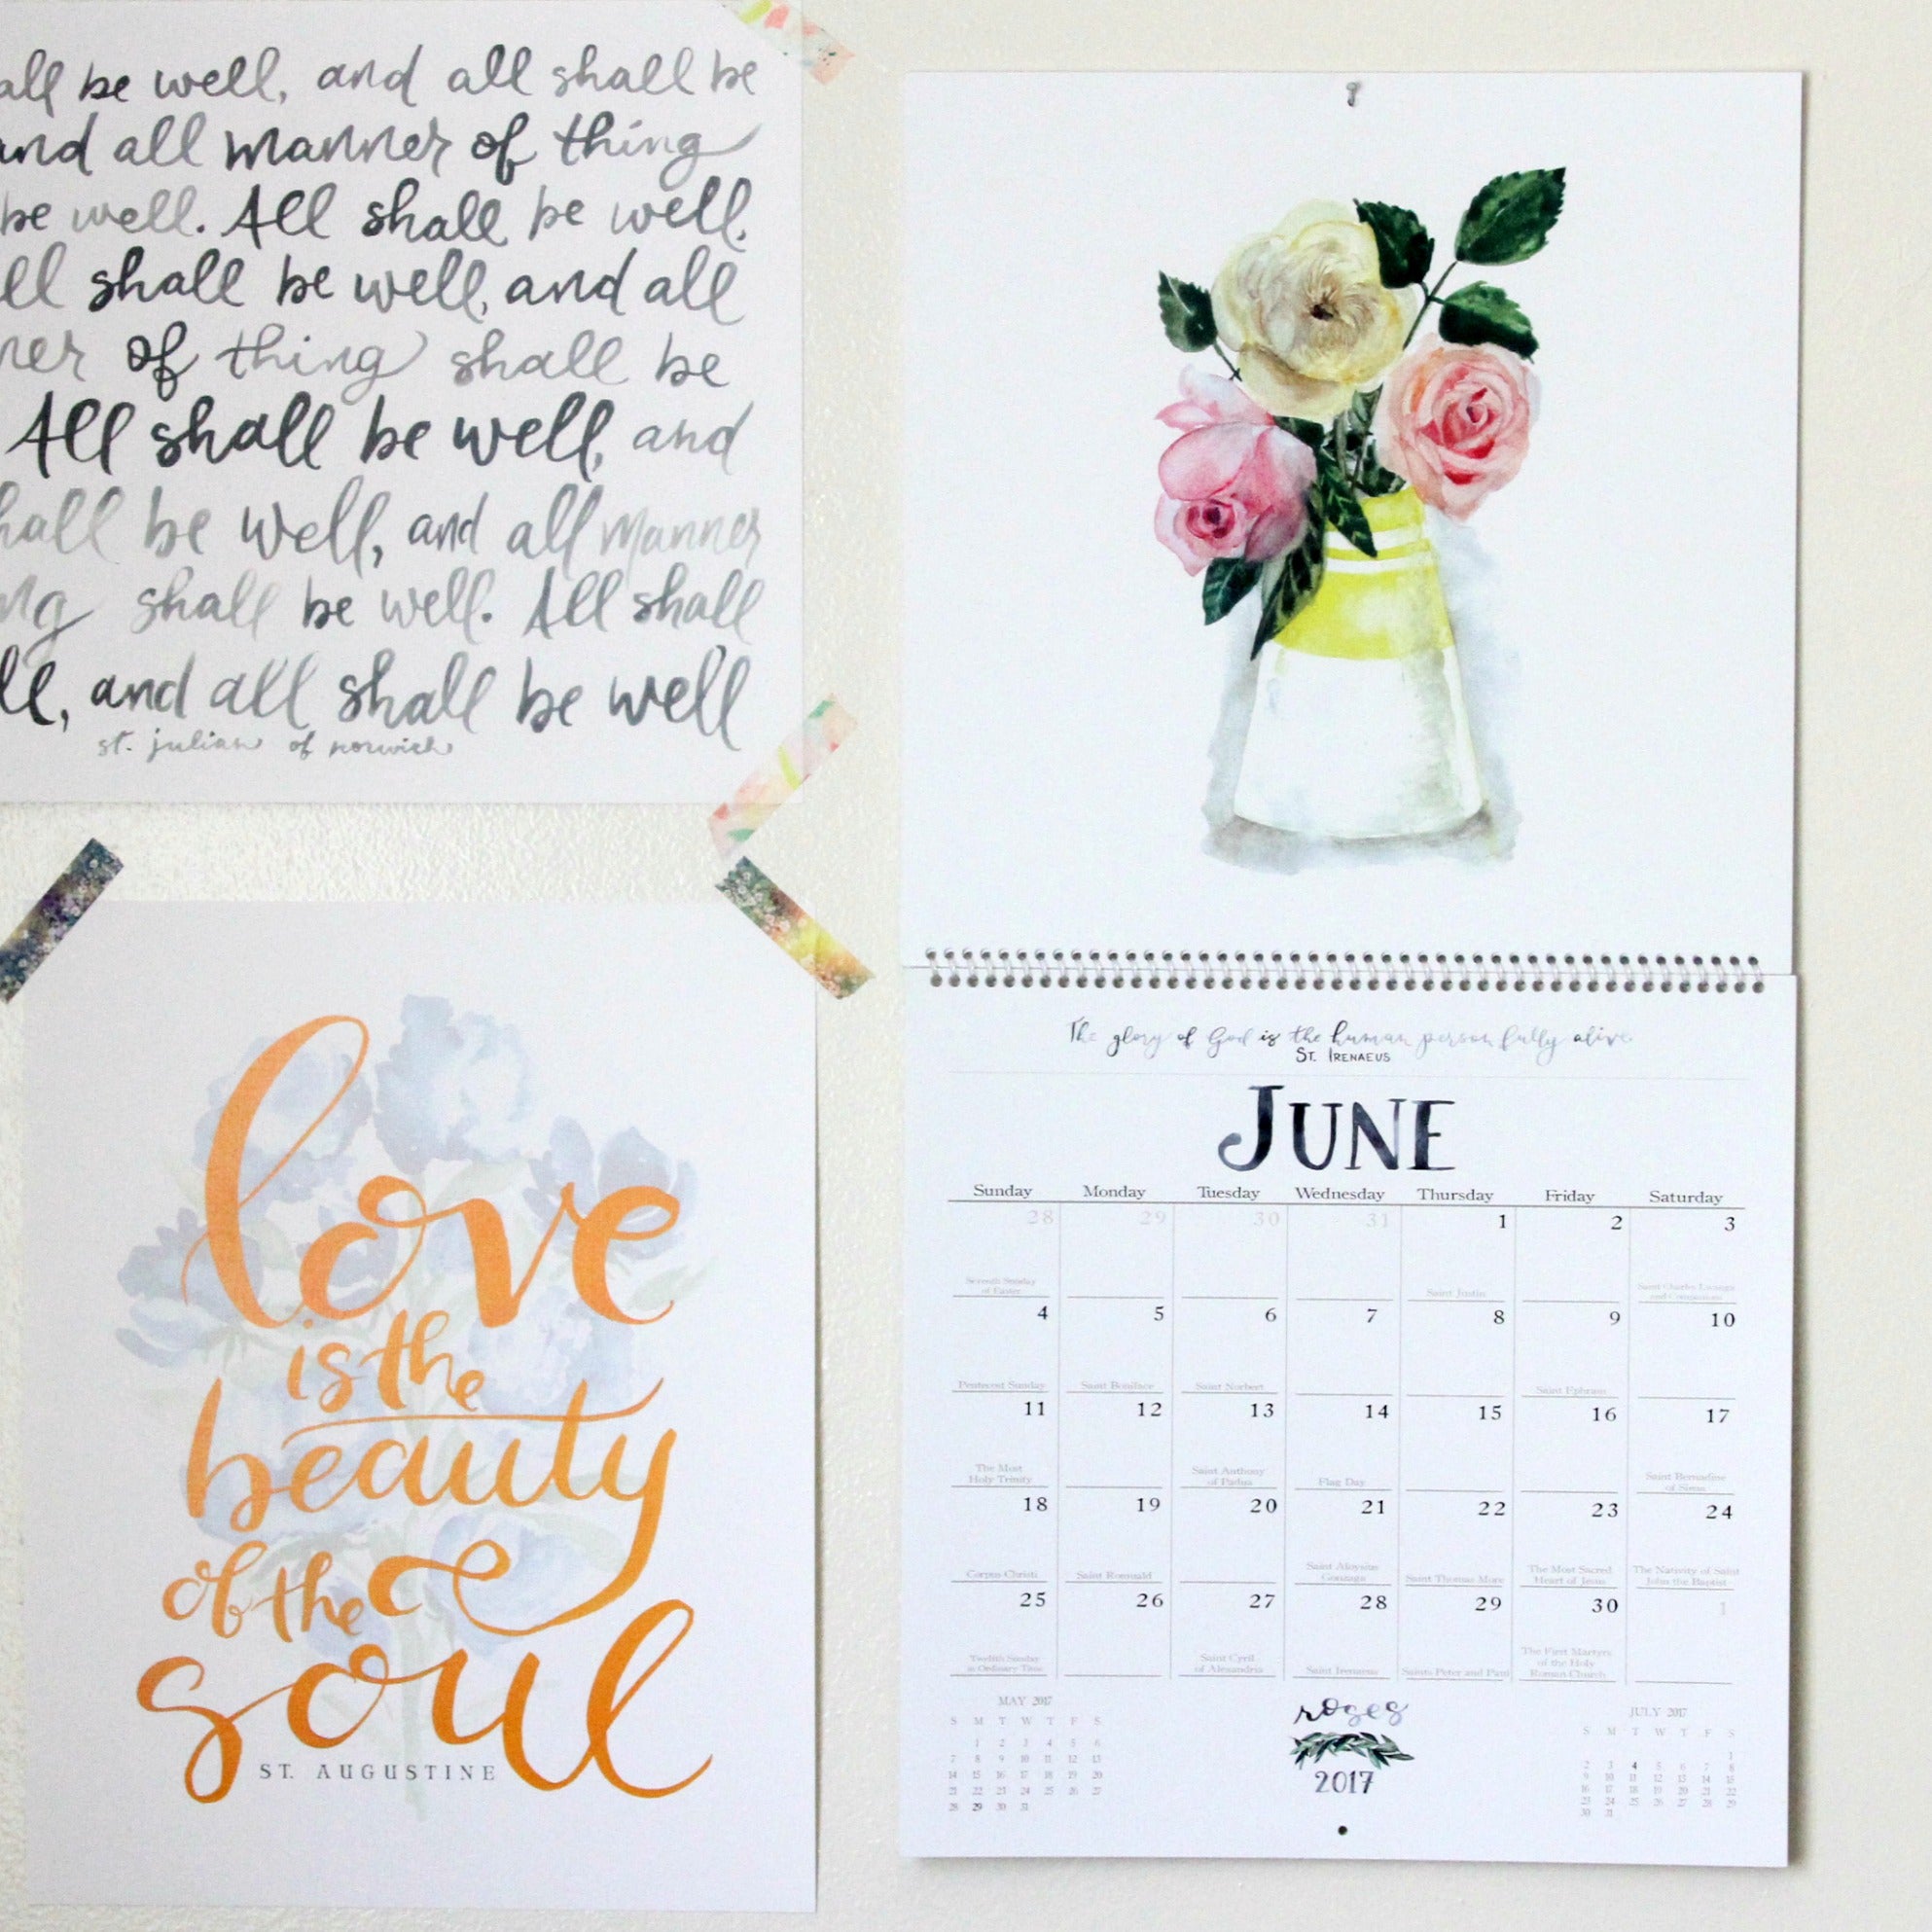 all be well, and all shall be
and all manner of thing
be well. All shall be well,
ll shall be well, and all
ner of thing shall be
All shall be well, and
hall be well, and all manner
ng shall be well. All shall
ll, and all shall be well
st. julian of norwich
love
is the
beauty
of the
soul
ST. AUGUSTINE
The glory of God is the human person fully alive.
ST. IRENAEUS
JUNE
Sunday Monday Tuesday Wednesday Thursday Friday Saturday
28 29 30 31 1 2 3
Seventh Sunday
of Easter
Saint Justin
Saint Charles Lwanga
and Companions
4 5 6 7 8 9 10
Pentecost Sunday Saint Boniface Saint Norbert Saint Ephrem
11 12 13 14 15 16 17
The Most
Holy Trinity
Saint Anthony
of Padua
Flag Day
Saint Bernadine
of Siena
18 19 20 21 22 23 24
Corpus Christi Saint Romuald
Saint Aloysius
Gonzaga
Saint Thomas More
The Most Sacred
Heart of Jesus
The Nativity of Saint
John the Baptist
25 26 27 28 29 30 1
Twelfth Sunday
in Ordinary Time
Saint Cyril
of Alexandria
Saint Irenaeus
Saints Peter and Paul
The First Martyrs
of the Holy
Roman Church
MAY 2017
S M T W T F S
1 2 3 4 5 6
7 8 9 10 11 12 13
14 15 16 17 18 19 20
21 22 23 24 25 26 27
28 29 30 31
roses
2017
JULY 2017
S M T W T F S
1
2 3 4 5 6 7 8
9 10 11 12 13 14 15
16 17 18 19 20 21 22
23 24 25 26 27 28 29
30 31